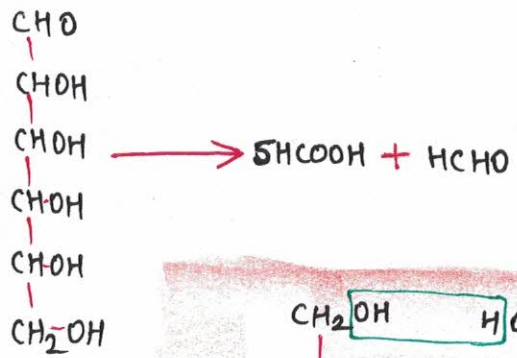 CHO
CHOH
CHOH → 5HCOOH + HCHO
CH-OH
CH-OH
CH2-OH
CH2 OH H